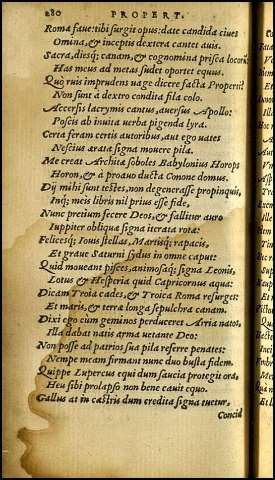 280 PROPERT.
Roma faue: tibi surgit opus: date candida ciues
Omina, & inceptis dextera cantet auis.
Sacra, diesq; canam, & cognomina prisca locorũ
Has meus ad metas sudet oportet equus.
Quò ruis imprudens uage dicere facta Properti?
Non sunt à dextro condita fila colo.
Accersis lacrymis cantus, auersus Apollo:
Poscis ab inuita uerba pigenda lyra.
Certa feram certis autoribus, aut ego uates
Nescius ærata signa mouere pila.
Me creat Archita soboles Babylonius Horops
Horon, & à proauo ducta Conone domus.
Dij mihi sunt testes, non degenerasse propinquis,
Inq; meis libris nil prius esse fide,
Nunc pretium fecere Deos, & fallitur auro
Iuppiter obliqua signa iterata rota:
Felicesq; Iouis stellas, Martisq; rapacis,
Et graue Saturni sydus in omne caput:
Quid moueant pisces, animosaq; signa Leonis,
Lotus & Hesperia quid Capricornus aqua:
Dicam Troia cades, & Troica Roma resurges:
Et maris, & terra longa sepulchra canam.
Dixi ego cùm geminos perduceret Arria natos,
Illa dabat natis arma uetante Deo:
Non posse ad patrios sua pila referre penates:
Nempe meam firmant nunc duo busta fidem.
Quippe Lupercus equi dum saucia protegit ora,
Heu sibi prolapso non bene cauit equo.
Gallus at in castris dum credita signa tuetur,
Concid